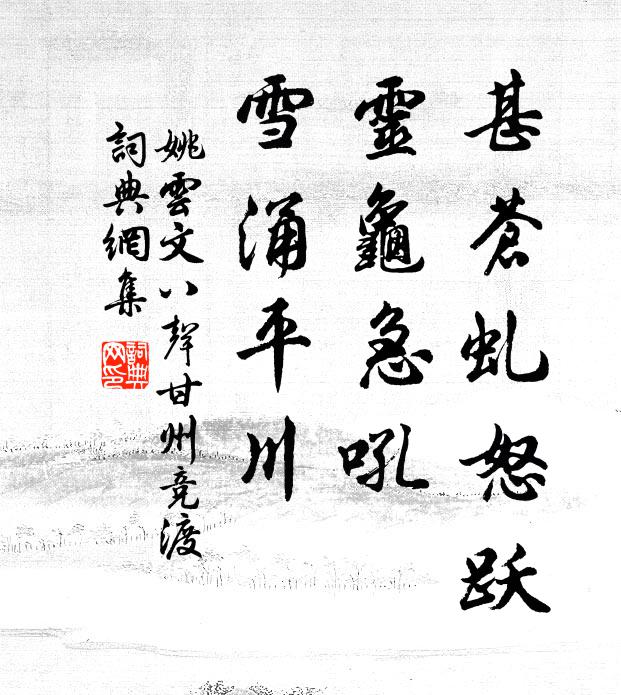 甚蒼虬怒跃
靈龜急吼
雪涌平川
姚雲文八聲甘州竞渡
詞典網集
詞典网印